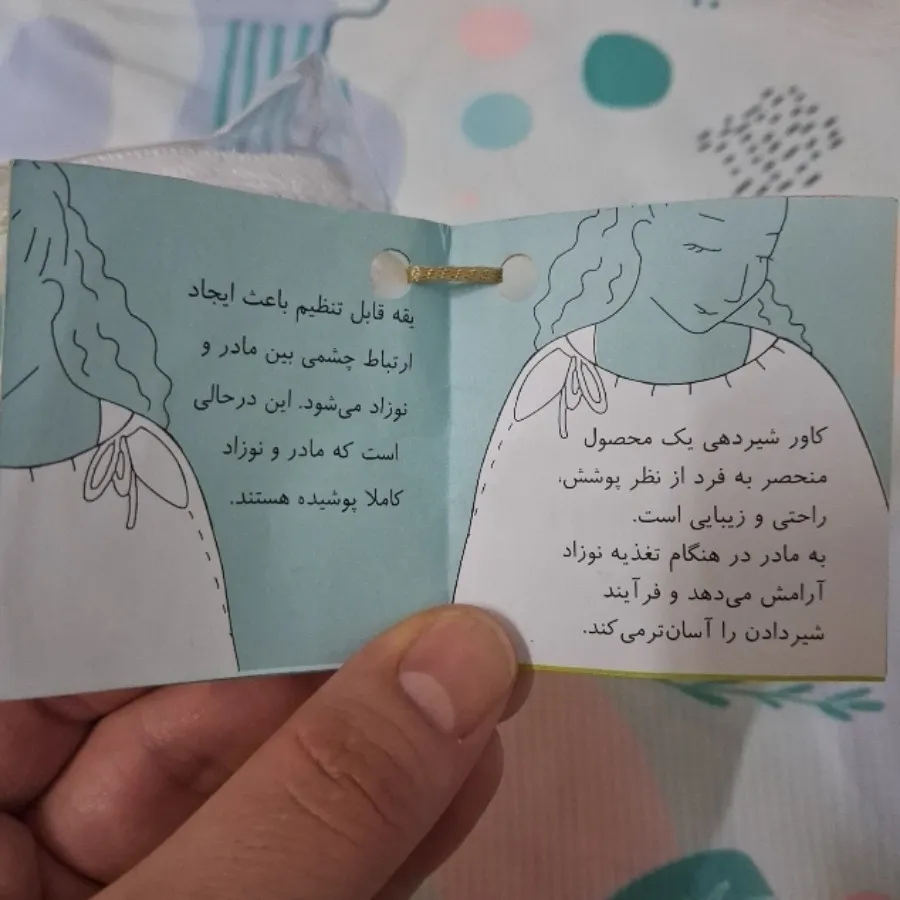 کاور شیردهی یک محصول
منحصر به فرد از نظر پوشش،
راحتی و زیبایی است.
به مادر در هنگام تغذیه نوزاد
آرامش می‌دهد و فرآیند
شیردادن را آسان‌ترمی‌کند.
یقه قابل تنظیم باعث ایجاد
ارتباط چشمی بین مادر و
نوزاد می‌شود. این درحالی
است که مادر و نوزاد
کاملا پوشیده هستند.